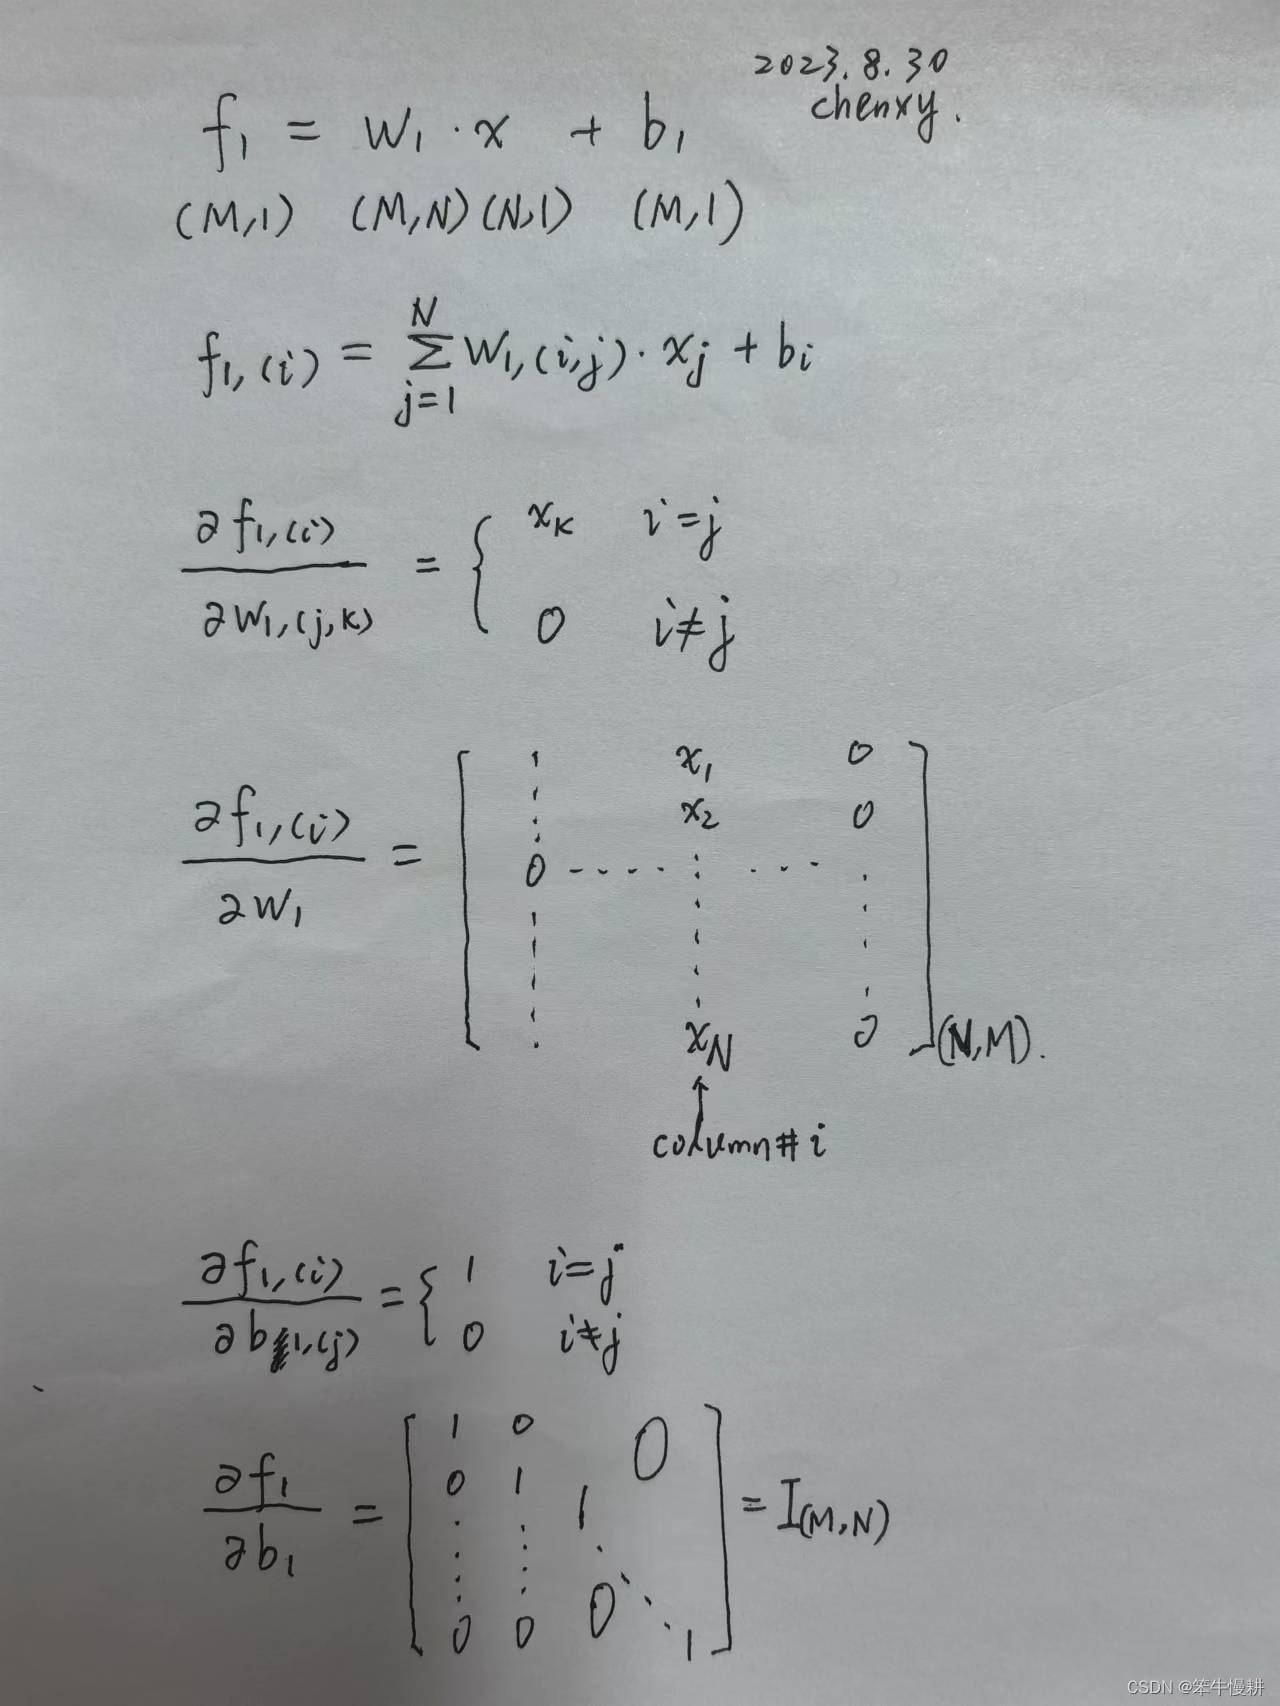 2023.8.30
chenxy.
f₁ = W₁ · x + b₁
(M,1) (M,N) (N,1) (M,1)
f₁,(i) = Σ_{j=1}^{N} W₁,(i,j) · x_j + b_i
∂f₁,(i) / ∂W₁,(j,k) = { x_k i=j
0 i≠j
∂f₁,(i) / ∂W₁ = [ ⋮ x₁ 0
x₂ 0
0 ---- ⋮ · · · ⋮
⋮ x_N 0 ] (N,M).
↑
column# i
∂f₁,(i) / ∂b₁,(j) = { 1 i=j
0 i≠j
∂f₁ / ∂b₁ = [ 1 0 0
0 1 1
⋮ ⋮ ⋱
0 0 0 1 ] = I(M,N)
CSDN @笨牛慢耕